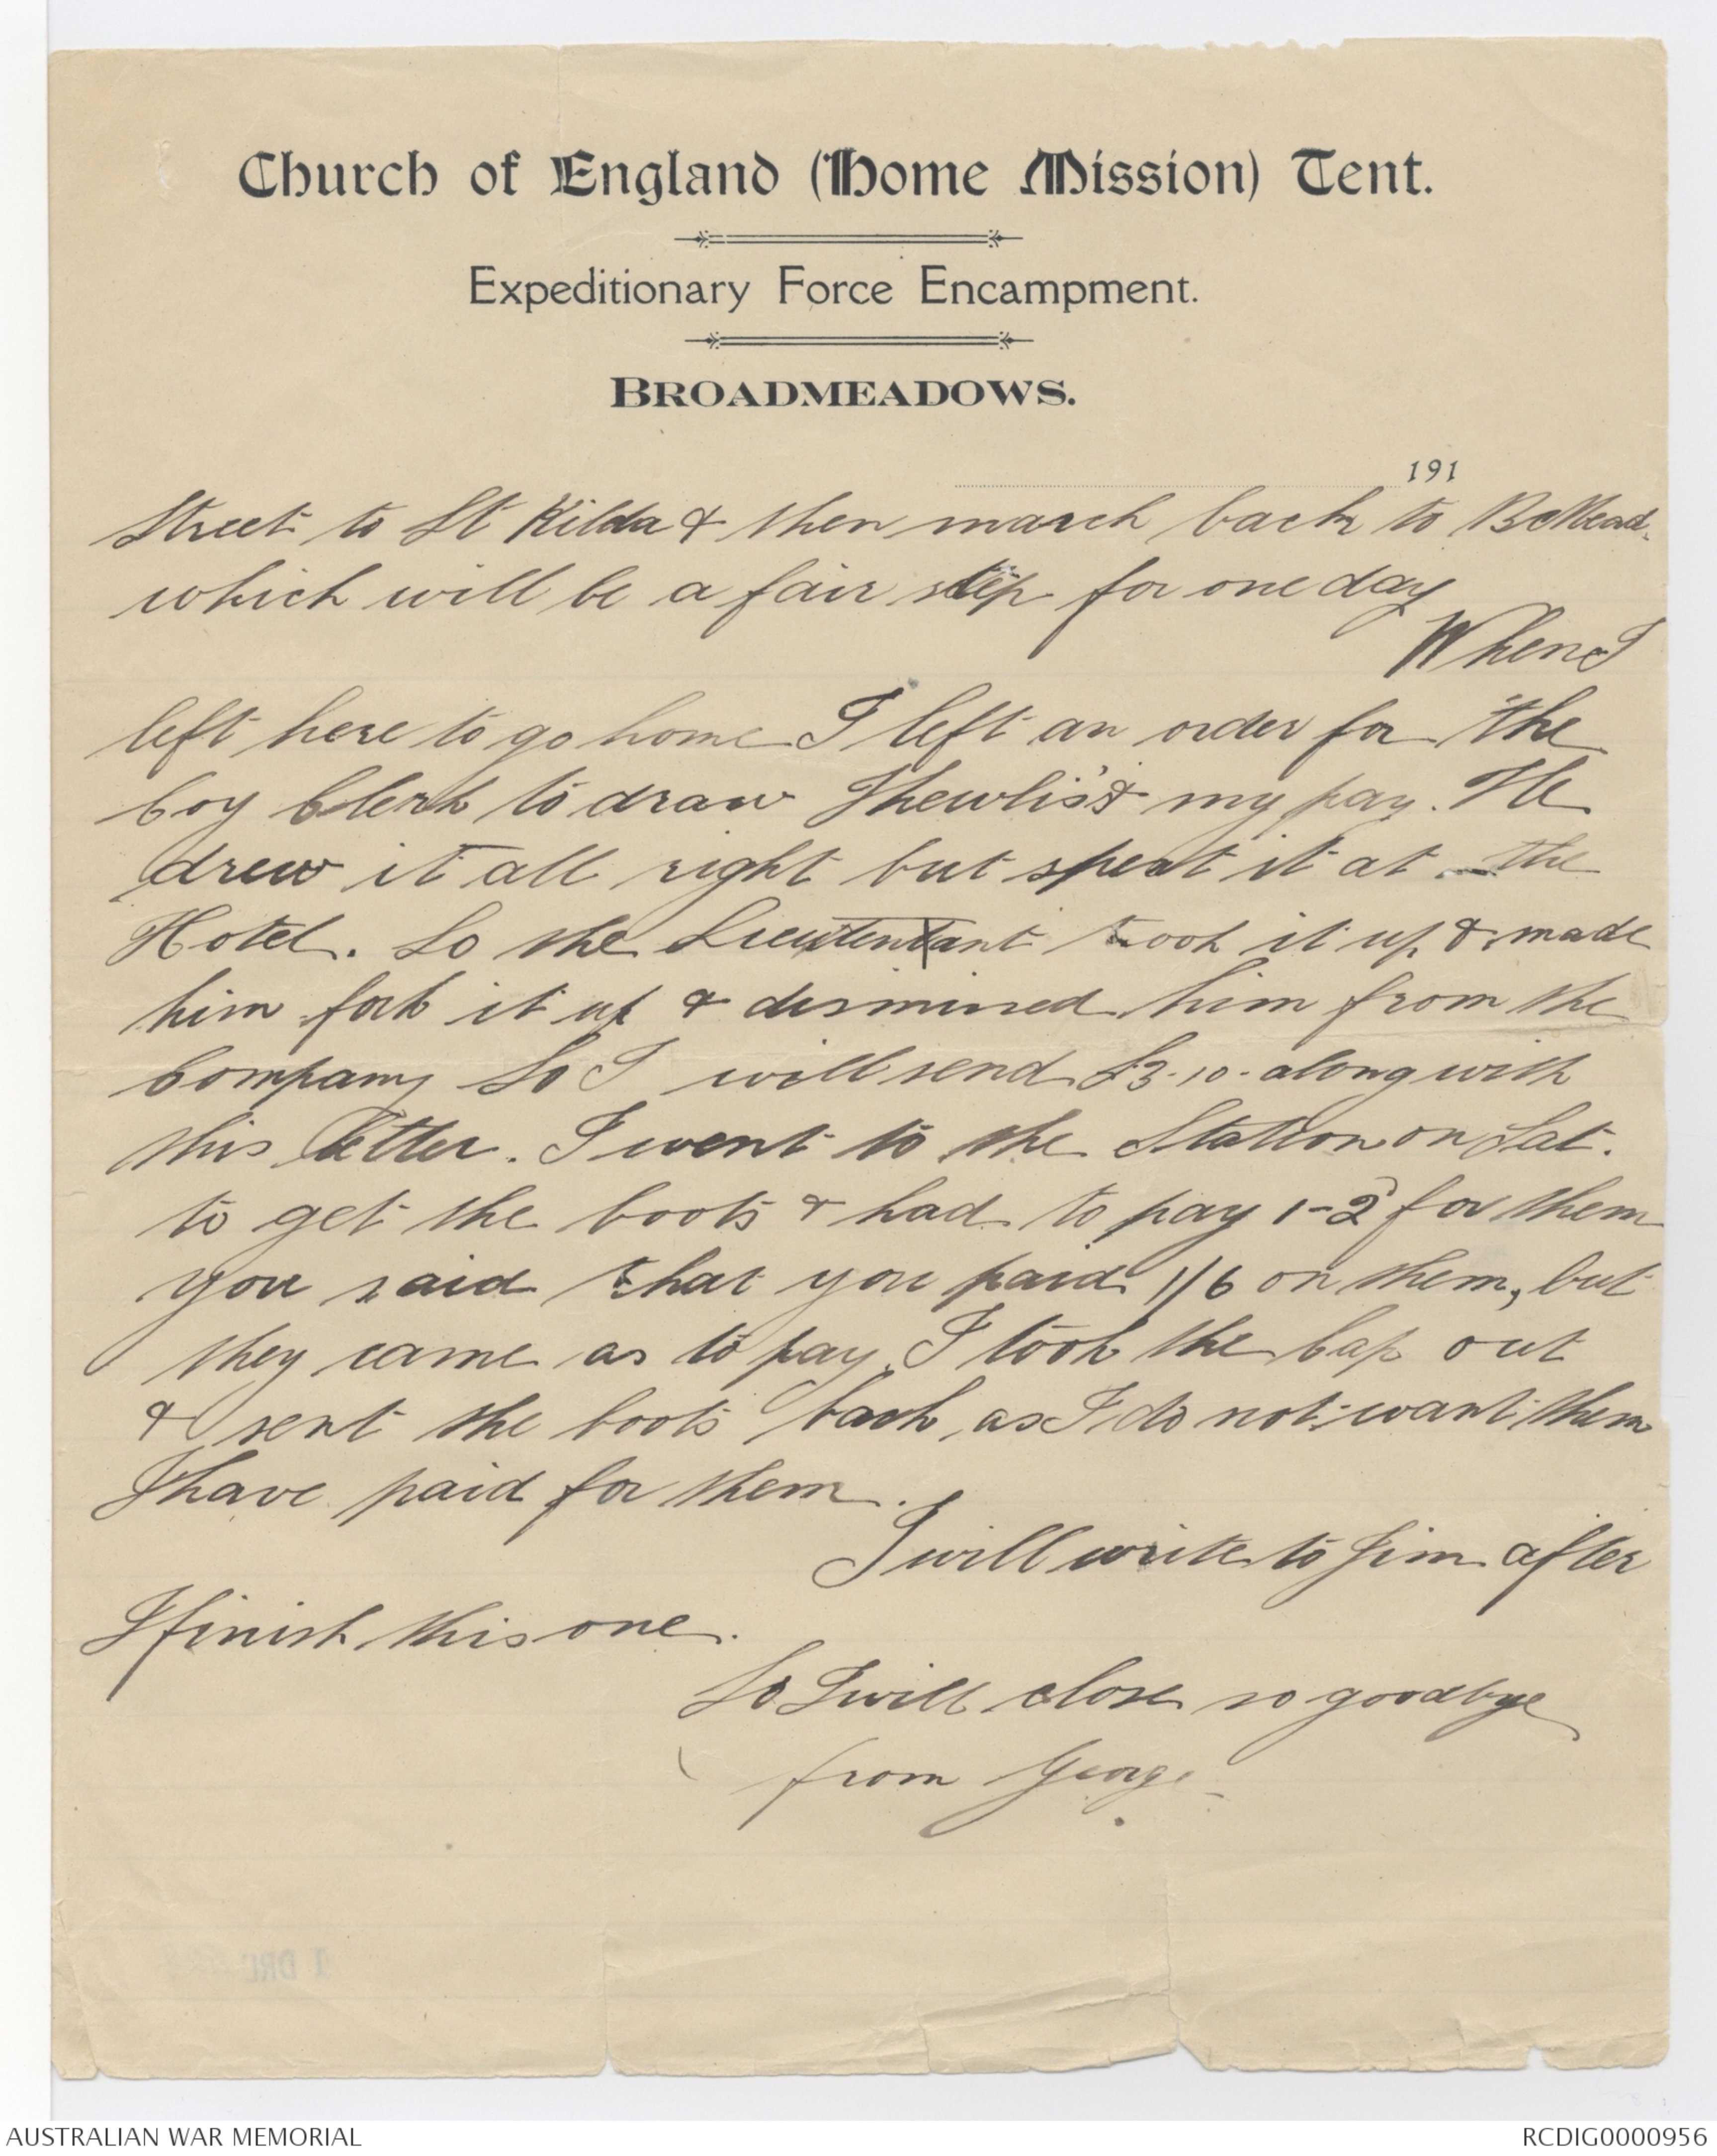 Church of England (Home Mission) Tent.
Expeditionary Force Encampment.
BROADMEADOWS.
191
Street to St Kilda & then march back to
which will be a fair step for one day
When I
left here to go home I left an order for the
Coy Clerk to draw Thewlis's & my pay. He
drew it all right but spent it at the
Hotel. So the Lieutentant took it up & made
him fork it up & dismissed him from the
Company So I will send £3-10- along with
this letter. I went to the Station on Sat.
to get the boots & had to pay 1-2 for them
you said that you paid 1/6 on them, but
they came as to pay. I took the cap out
& sent the boots back, as I do not want them
I have paid for them.
I will write to Jim after
I finish this one.
So I will close so goodbye
from George
AUSTRALIAN WAR MEMORIAL
RCDIG0000956